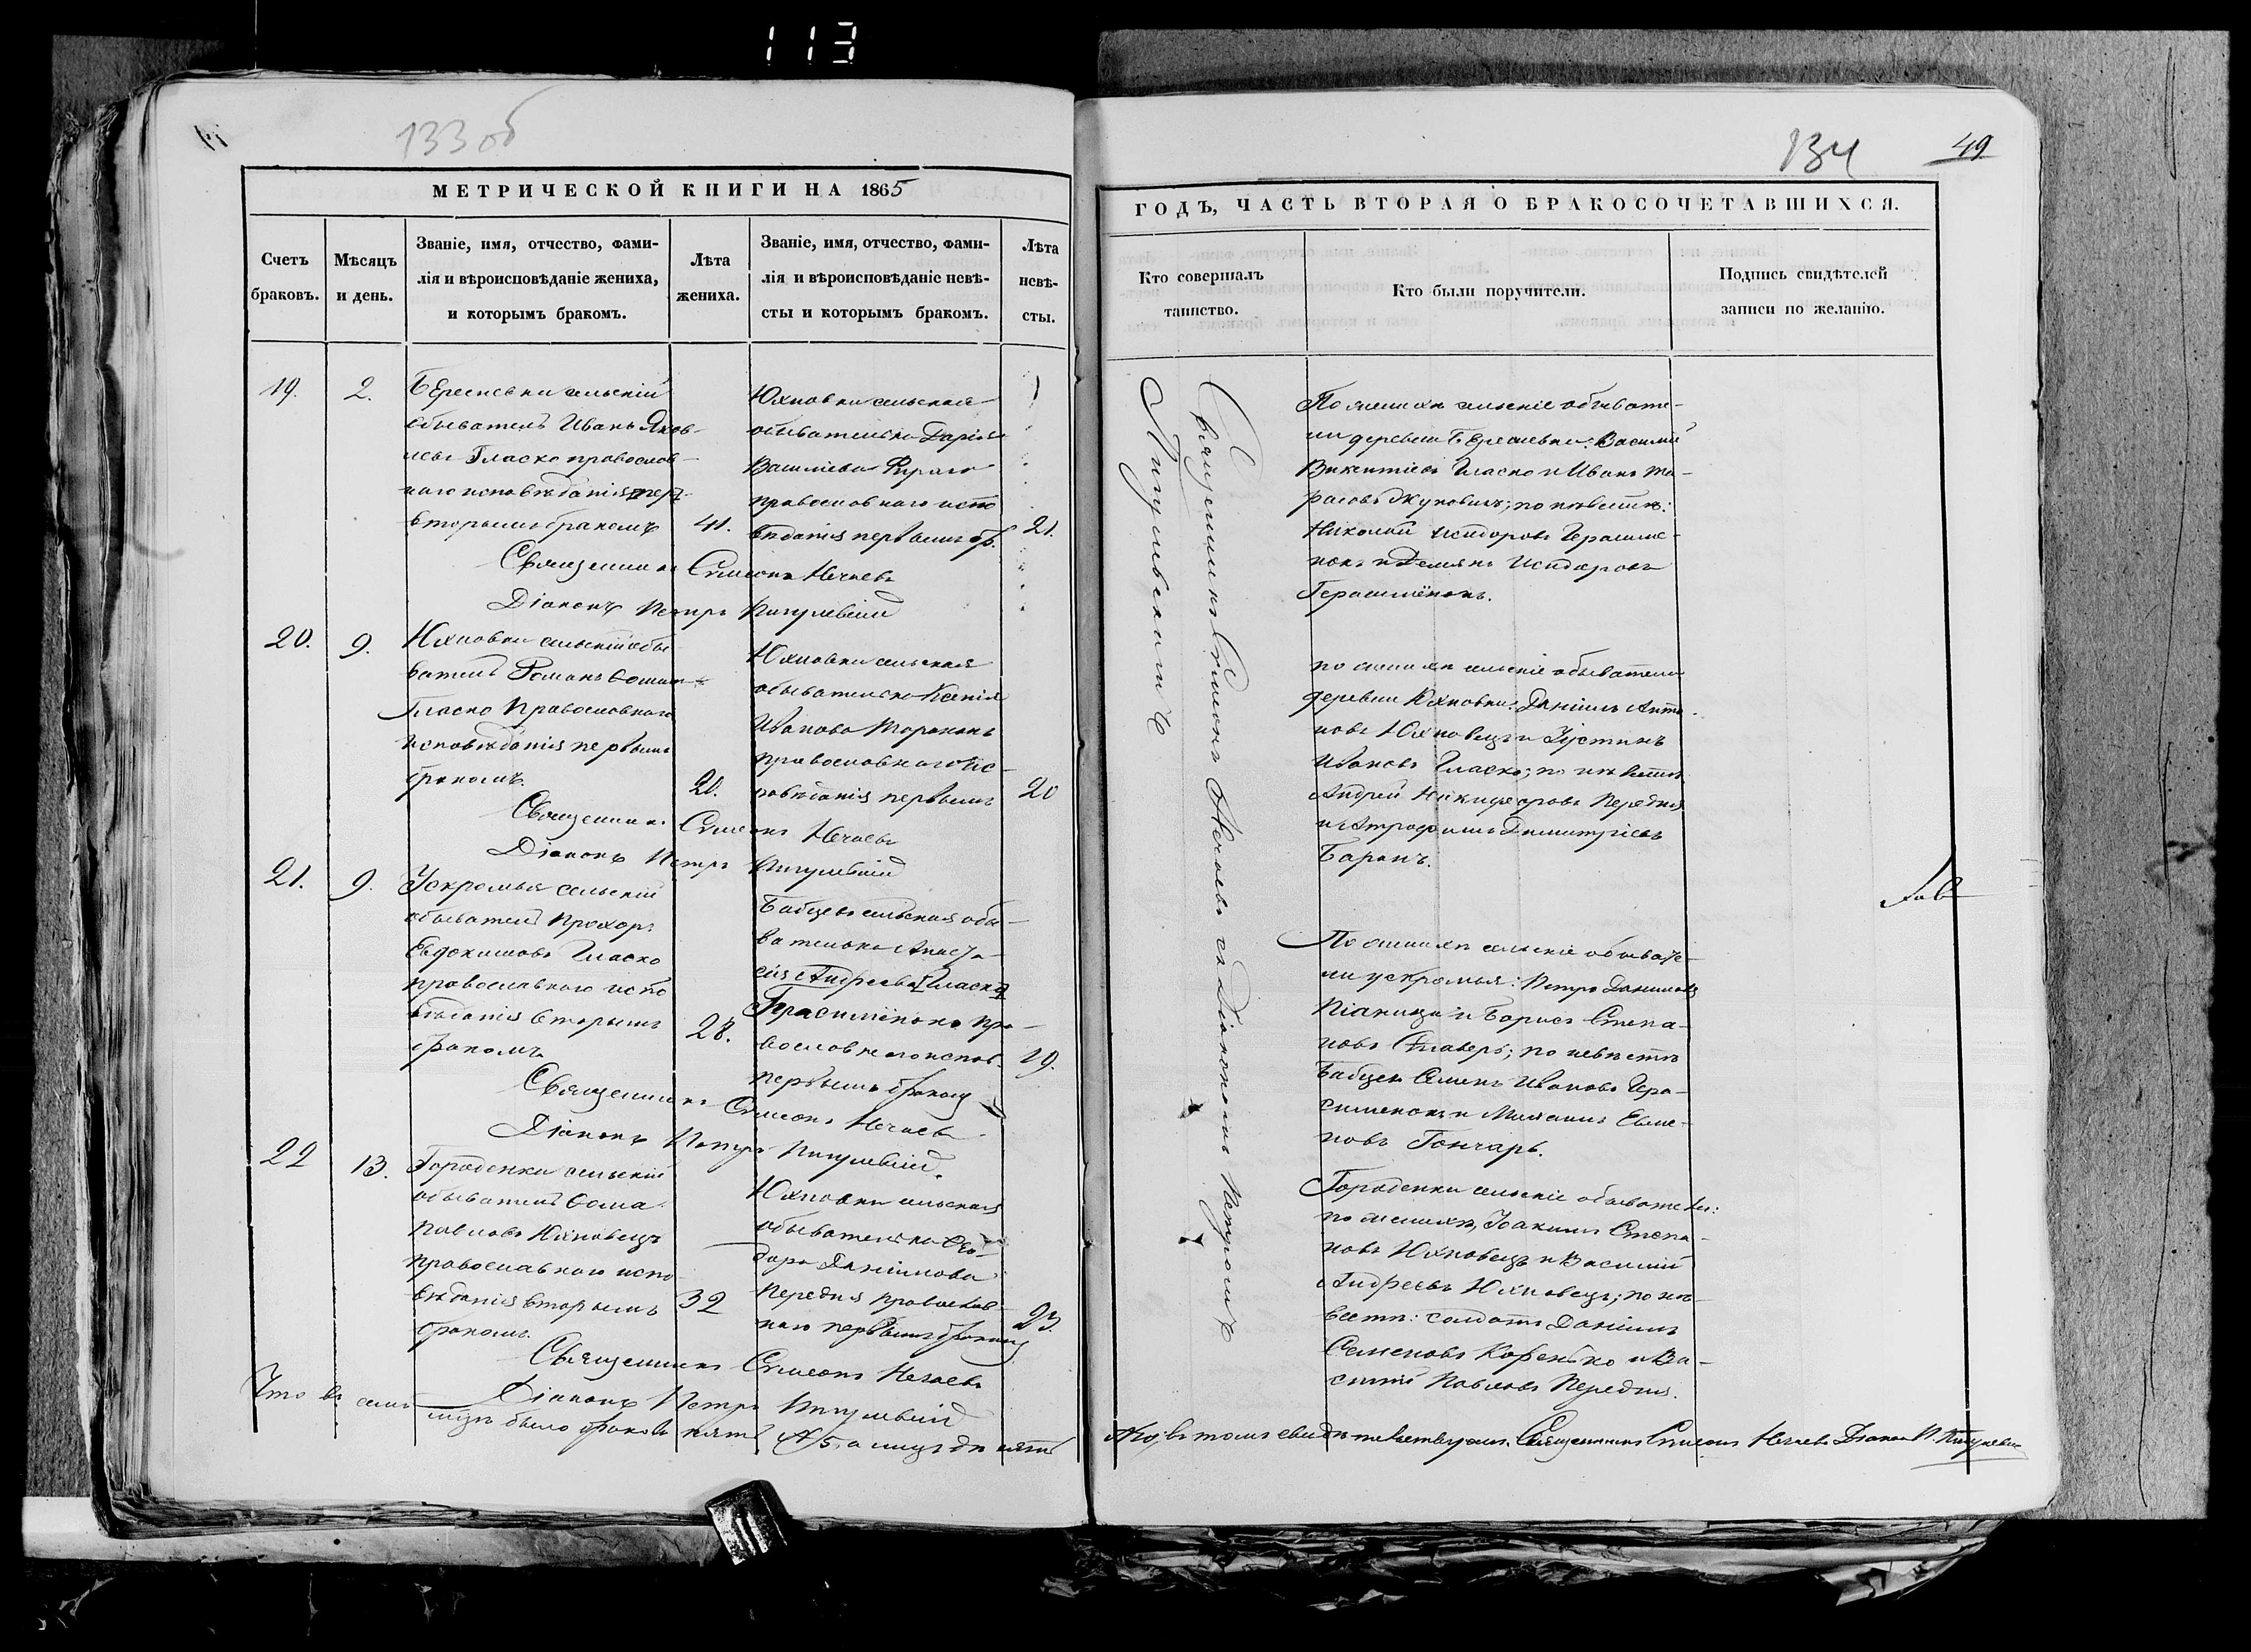 113
133 об
134
49
МЕТРИЧЕСКОЙ КНИГИ НА 1865
Счетъ браковъ.
Мѣсяцъ и день.
Званіе, имя, отчество, фами-
лія и вѣроисповѣданіе жениха,
и которымъ бракомъ.
Лѣта жениха.
Званіе, имя, отчество, фами-
лія и вѣроисповѣданіе невѣ-
сты и которымъ бракомъ.
Лѣта невѣ-
сты.
19.
2.
сельскій
обыватель Иванъ Яков-
левъ Гласко православ-
наго исповѣданія
вторымъ бракомъ
41.
Юхновки сельская
обывателька Дарія
Васильева
православнаго испо
вѣданія первымъ бр.
21.
Священникъ Симеонъ Нечаевъ
Діаконъ Петръ Пигулевскій
20.
9.
Юхновки сельскій обы
ватель Романъ
Гласко Православнаго
исповѣданія первымъ
бракомъ.
20.
Юхновки сельская
обывателька Ксенія
Иванова
православнаго ис-
повѣданія первымъ
20
Священникъ Симеонъ Нечаевъ
Діаконъ Петръ Пигулевскій
21.
9.
Ускромья сельскій
обыватель Прохоръ
Евдокимовъ Гласко
православнаго испо
вѣданія вторымъ
бракомъ
28.
Бабцевъ сельская обы-
вателька Анаста-
сія Андреева Гласко
Герасимёнокъ пра-
вославнаго испов.
первымъ бракомъ
19.
Священникъ Симеонъ Нечаевъ
Діаконъ Петръ Пигулевскій.
22
13.
Городенки сельскій
обыватель Ѳома
Павловъ Юхновецъ
православнаго испо
вѣданія вторымъ
бракомъ.
32
Юхновки сельская
обывателька Ѳео-
дора Даніилова
Передня православ-
наго первымъ бракомъ
23.
Священникъ Симеонъ Нечаевъ
Діаконъ Петръ Пигулевскій
Что въ семъ мцѣ было браковъ пять
ГОДЪ, ЧАСТЬ ВТОРАЯ О БРАКОСОЧЕТАВШИХСЯ.
Кто совершалъ
таинство.
Кто были поручители.
Подпись свидѣтелей
записи по желанію.
Священникъ Симеонъ Нечаевъ съ Діакономъ Петромъ
Пигулевскимъ
По женихѣ сельскіе обывате-
ли деревни Василій
Викентіевъ Гласко и Иванъ Та-
расовъ Жуковичъ; по невѣстѣ:
Николай Исидоровъ Герасиме-
нокъ и Демьянъ Исидоровъ
Герасимёнокъ.
по женихѣ сельскіе обыватели
деревни Юхновки: Даніилъ Анто-
новъ Юхновецъ и Іустинъ
Ивановъ Гласко; по невѣстѣ
Андрей Никифоровъ Передня
и Димитріевъ
Баранъ.
По женихѣ сельскіе обывате-
ли ускромья: Петръ Даниловъ
Піаница и Борисъ Степа-
новъ Столяръ; по невѣстѣ
Бабцевъ Семенъ Ивановъ Гера-
сименокъ и
новъ Гончаръ.
Городенки сельскіе обыватели:
по женихѣ, Іоакимъ Степа-
новъ Юхновецъ и Василій
Андреевъ Юхновецъ; по не-
вѣстѣ: солдатъ Даніилъ
Семеновъ и Ва-
силій Павловъ Передня.
въ томъ свидѣтельствуемъ. Священникъ Симеонъ Нечаевъ Діаконъ П. Пигулевскій